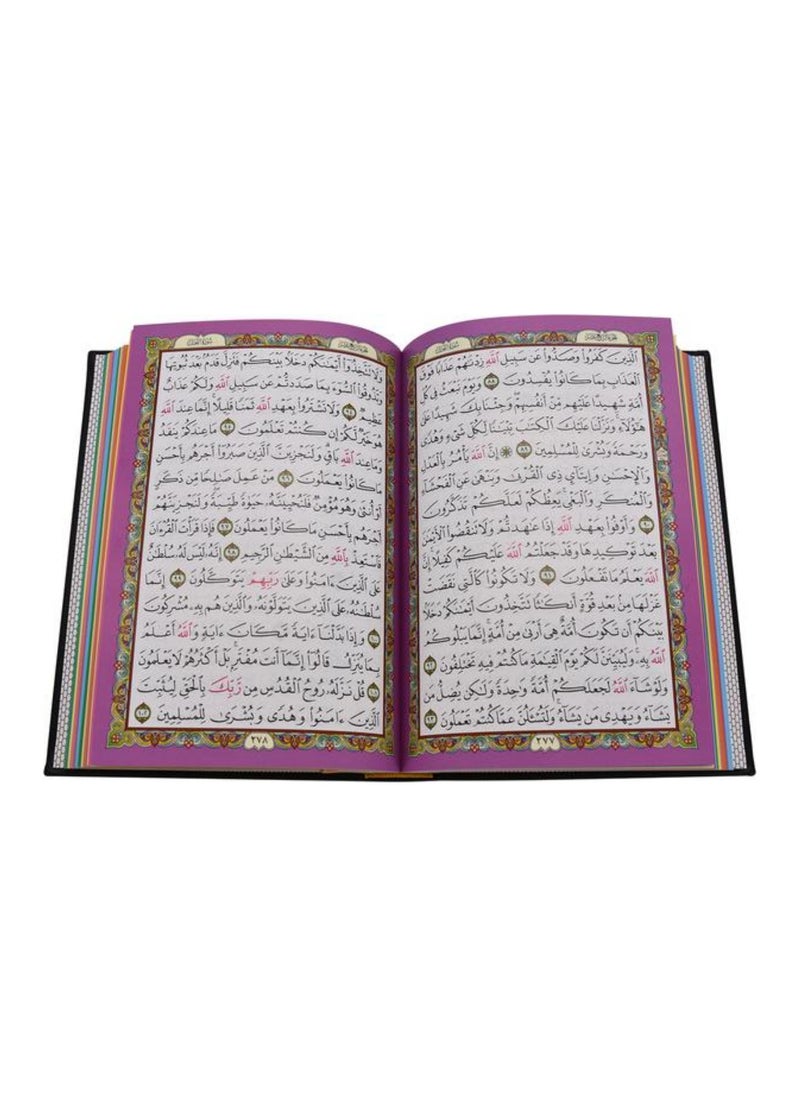 الَّذِينَ كَفَرُوا۟ وَصَدُّوا۟ عَن سَبِيلِ ٱللَّهِ زِدْنَٰهُمْ عَذَابًا فَوْقَ
الْعَذَابِ بِمَا كَانُوا۟ يُفْسِدُونَ ٨٨ وَيَوْمَ نَبْعَثُ فِى كُلِّ
أُمَّةٍ شَهِيدًا عَلَيْهِم مِّنْ أَنفُسِهِمْ وَجِئْنَا بِكَ شَهِيدًا عَلَىٰ
هَٰٓؤُلَآءِ وَنَزَّلْنَا عَلَيْكَ ٱلْكِتَٰبَ تِبْيَٰنًا لِّكُلِّ شَىْءٍ وَهُدًى
وَرَحْمَةً وَبُشْرَىٰ لِلْمُسْلِمِينَ ٨٩ ۞ إِنَّ ٱللَّهَ يَأْمُرُ بِٱلْعَدْلِ
وَٱلْإِحْسَٰنِ وَإِيتَآئِ ذِى ٱلْقُرْبَىٰ وَيَنْهَىٰ عَنِ ٱلْفَحْشَآءِ
وَٱلْمُنكَرِ وَٱلْبَغْىِ يَعِظُكُمْ لَعَلَّكُمْ تَذَكَّرُونَ
٩٠ وَأَوْفُوا۟ بِعَهْدِ ٱللَّهِ إِذَا عَٰهَدتُّمْ وَلَا تَنقُضُوا۟ ٱلْأَيْمَٰنَ
بَعْدَ تَوْكِيدِهَا وَقَدْ جَعَلْتُمُ ٱللَّهَ عَلَيْكُمْ كَفِيلًا إِنَّ
ٱللَّهَ يَعْلَمُ مَا تَفْعَلُونَ ٩١ وَلَا تَكُونُوا۟ كَٱلَّتِى نَقَضَتْ
غَزْلَهَا مِنۢ بَعْدِ قُوَّةٍ أَنكَٰثًا تَتَّخِذُونَ أَيْمَٰنَكُمْ دَخَلًۢا
بَيْنَكُمْ أَن تَكُونَ أُمَّةٌ هِىَ أَرْبَىٰ مِنْ أُمَّةٍ إِنَّمَا يَبْلُوكُمُ
ٱللَّهُ بِهِۦ وَلَيُبَيِّنَنَّ لَكُمْ يَوْمَ ٱلْقِيَٰمَةِ مَا كُنتُمْ فِيهِ تَخْتَلِفُونَ ٩٢
وَلَوْ شَآءَ ٱللَّهُ لَجَعَلَكُمْ أُمَّةً وَٰحِدَةً وَلَٰكِن يُضِلُّ مَن
يَشَآءُ وَيَهْدِى مَن يَشَآءُ وَلَتُسْـَٔلُنَّ عَمَّا كُنتُمْ تَعْمَلُونَ ٩٣
٢٧٧
وَلَا تَتَّخِذُوٓا۟ أَيْمَٰنَكُمْ دَخَلًۢا بَيْنَكُمْ فَتَزِلَّ قَدَمٌۢ بَعْدَ ثُبُوتِهَا
وَتَذُوقُوا۟ ٱلسُّوٓءَ بِمَا صَدَدتُّمْ عَن سَبِيلِ ٱللَّهِ وَلَكُمْ عَذَابٌ
عَظِيمٌ ٩٤ وَلَا تَشْتَرُوا۟ بِعَهْدِ ٱللَّهِ ثَمَنًا قَلِيلًا إِنَّمَا عِندَ ٱللَّهِ
هُوَ خَيْرٌ لَّكُمْ إِن كُنتُمْ تَعْلَمُونَ ٩٥ مَا عِندَكُمْ يَنفَدُ
وَمَا عِندَ ٱللَّهِ بَاقٍ وَلَنَجْزِيَنَّ ٱلَّذِينَ صَبَرُوٓا۟ أَجْرَهُم بِأَحْسَنِ
مَا كَانُوا۟ يَعْمَلُونَ ٩٦ مَنْ عَمِلَ صَٰلِحًا مِّن ذَكَرٍ
أَوْ أُنثَىٰ وَهُوَ مُؤْمِنٌ فَلَنُحْيِيَنَّهُۥ حَيَوٰةً طَيِّبَةً وَلَنَجْزِيَنَّهُمْ
أَجْرَهُم بِأَحْسَنِ مَا كَانُوا۟ يَعْمَلُونَ ٩٧ فَإِذَا قَرَأْتَ ٱلْقُرْءَانَ
فَٱسْتَعِذْ بِٱللَّهِ مِنَ ٱلشَّيْطَٰنِ ٱلرَّجِيمِ ٩٨ إِنَّهُۥ لَيْسَ لَهُۥ سُلْطَٰنٌ
عَلَى ٱلَّذِينَ ءَامَنُوا۟ وَعَلَىٰ رَبِّهِمْ يَتَوَكَّلُونَ ٩٩ إِنَّمَا
سُلْطَٰنُهُۥ عَلَى ٱلَّذِينَ يَتَوَلَّوْنَهُۥ وَٱلَّذِينَ هُم بِهِۦ مُشْرِكُونَ
١٠٠ وَإِذَا بَدَّلْنَآ ءَايَةً مَّكَانَ ءَايَةٍ وَٱللَّهُ أَعْلَمُ
بِمَا يُنَزِّلُ قَالُوٓا۟ إِنَّمَآ أَنتَ مُفْتَرٍۭ بَلْ أَكْثَرُهُمْ لَا يَعْلَمُونَ
١٠١ قُلْ نَزَّلَهُۥ رُوحُ ٱلْقُدُسِ مِن رَّبِّكَ بِٱلْحَقِّ لِيُثَبِّتَ
ٱلَّذِينَ ءَامَنُوا۟ وَهُدًى وَبُشْرَىٰ لِلْمُسْلِمِينَ ١٠٢
٢٧٨